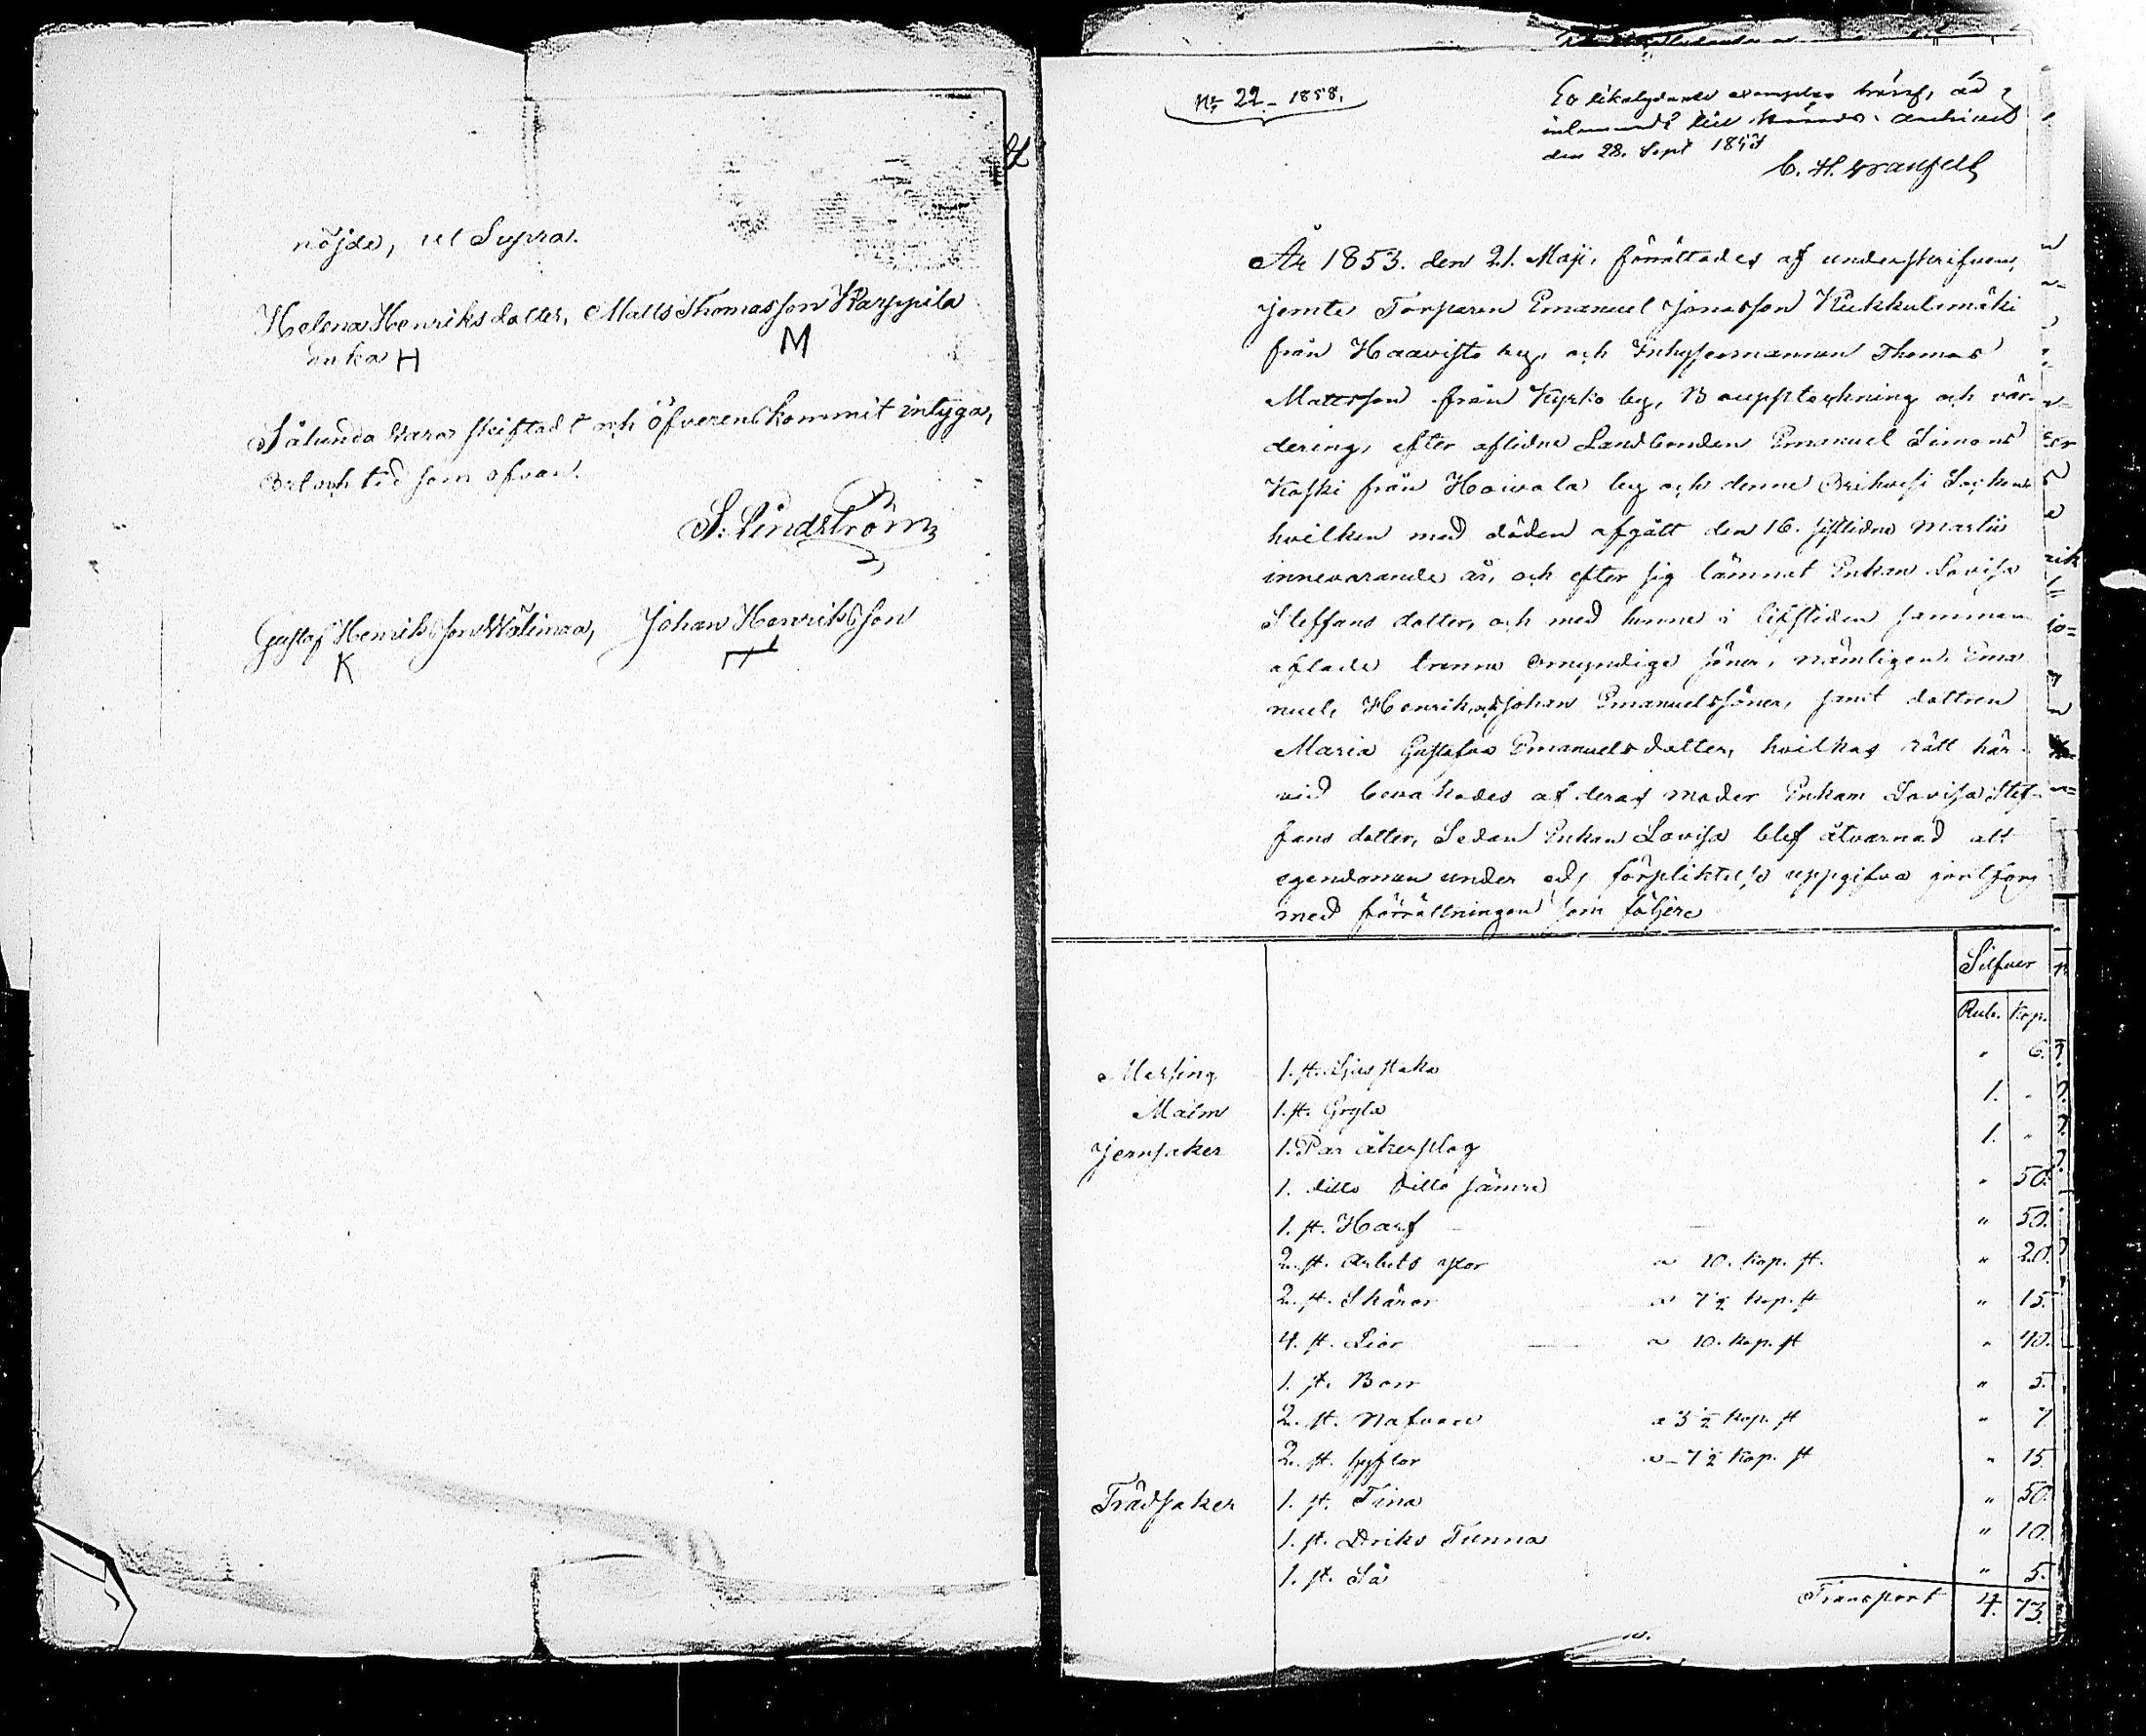 nöjde, ut Supra.
Helena Henriksdotter, Matts Thomasson Karppila
enka H M
Sålunda vara skiftadt och öfverenskommit intyga,
Ort och tid som ofvan.
S. Lindström
Gustaf Henriksson Wälimaa, Johan Henriksson
K
No 22 – 1858.
Ett likalydande exemplar häraf, är
inlemnadt till Härads archivet
den 28. Sept 1858
C. H.
År 1853. den 21. Maji, förrättades af underskrifven,
jemte Torparen Emanuel Jonasson Kukkulamäki
från Haavisto by, och Inhysesmannen Thomas
Mattsson från Kyrko by, Boupptekning och vär-
dering, efter aflidne Landbonden Emanuel Simons
Koski från Hoivala by och denne Orihvesi Socken
hvilken med döden afgått den 16. sistlidne Martii
innevarande år, och efter sig lämnat Enkan Lovisa
Steffans dotter, och med henne i lifstiden samman
aflade trenne omyndige söner, nämligen Ema
nuel, Henrik och Johan Emanuelssöner, samt dottren
Maria Gustafva Emanuelsdotter, hvilkas rätt här-
vid bevakades af deras moder Enkan Lovisa Stef-
fans dotter, Sedan Enkan Lovisa blef åtvarnad att
egendomen under eds förpliktelse uppgifva
med förrättningen som följer
Silfver
Rub. Kop.
Messing 1. st. Ljusstake " 6.
Malm 1. st. Gryta 1. -
Jernsaker 1. Par åkerplog 1. "
1. ditto ditto sämre " 50.
1. st. Harf " 50.
2. st. Arbets yxor a 10. Kop. st. " 20.
2. st. Skäror a 7½ Kop. st " 15.
4. st. Liar a 10. Kop. st " 40.
1. st. Borr " 5.
2. st. Nafvare a 3½ Kop. st " 7
2. st. hyflar a 7½ Kop. st " 15
Trädsaker 1. st. Tina " 50.
1. st. Driks Tunna " 10.
1. st. Så " 5.
Transport 4. 73.